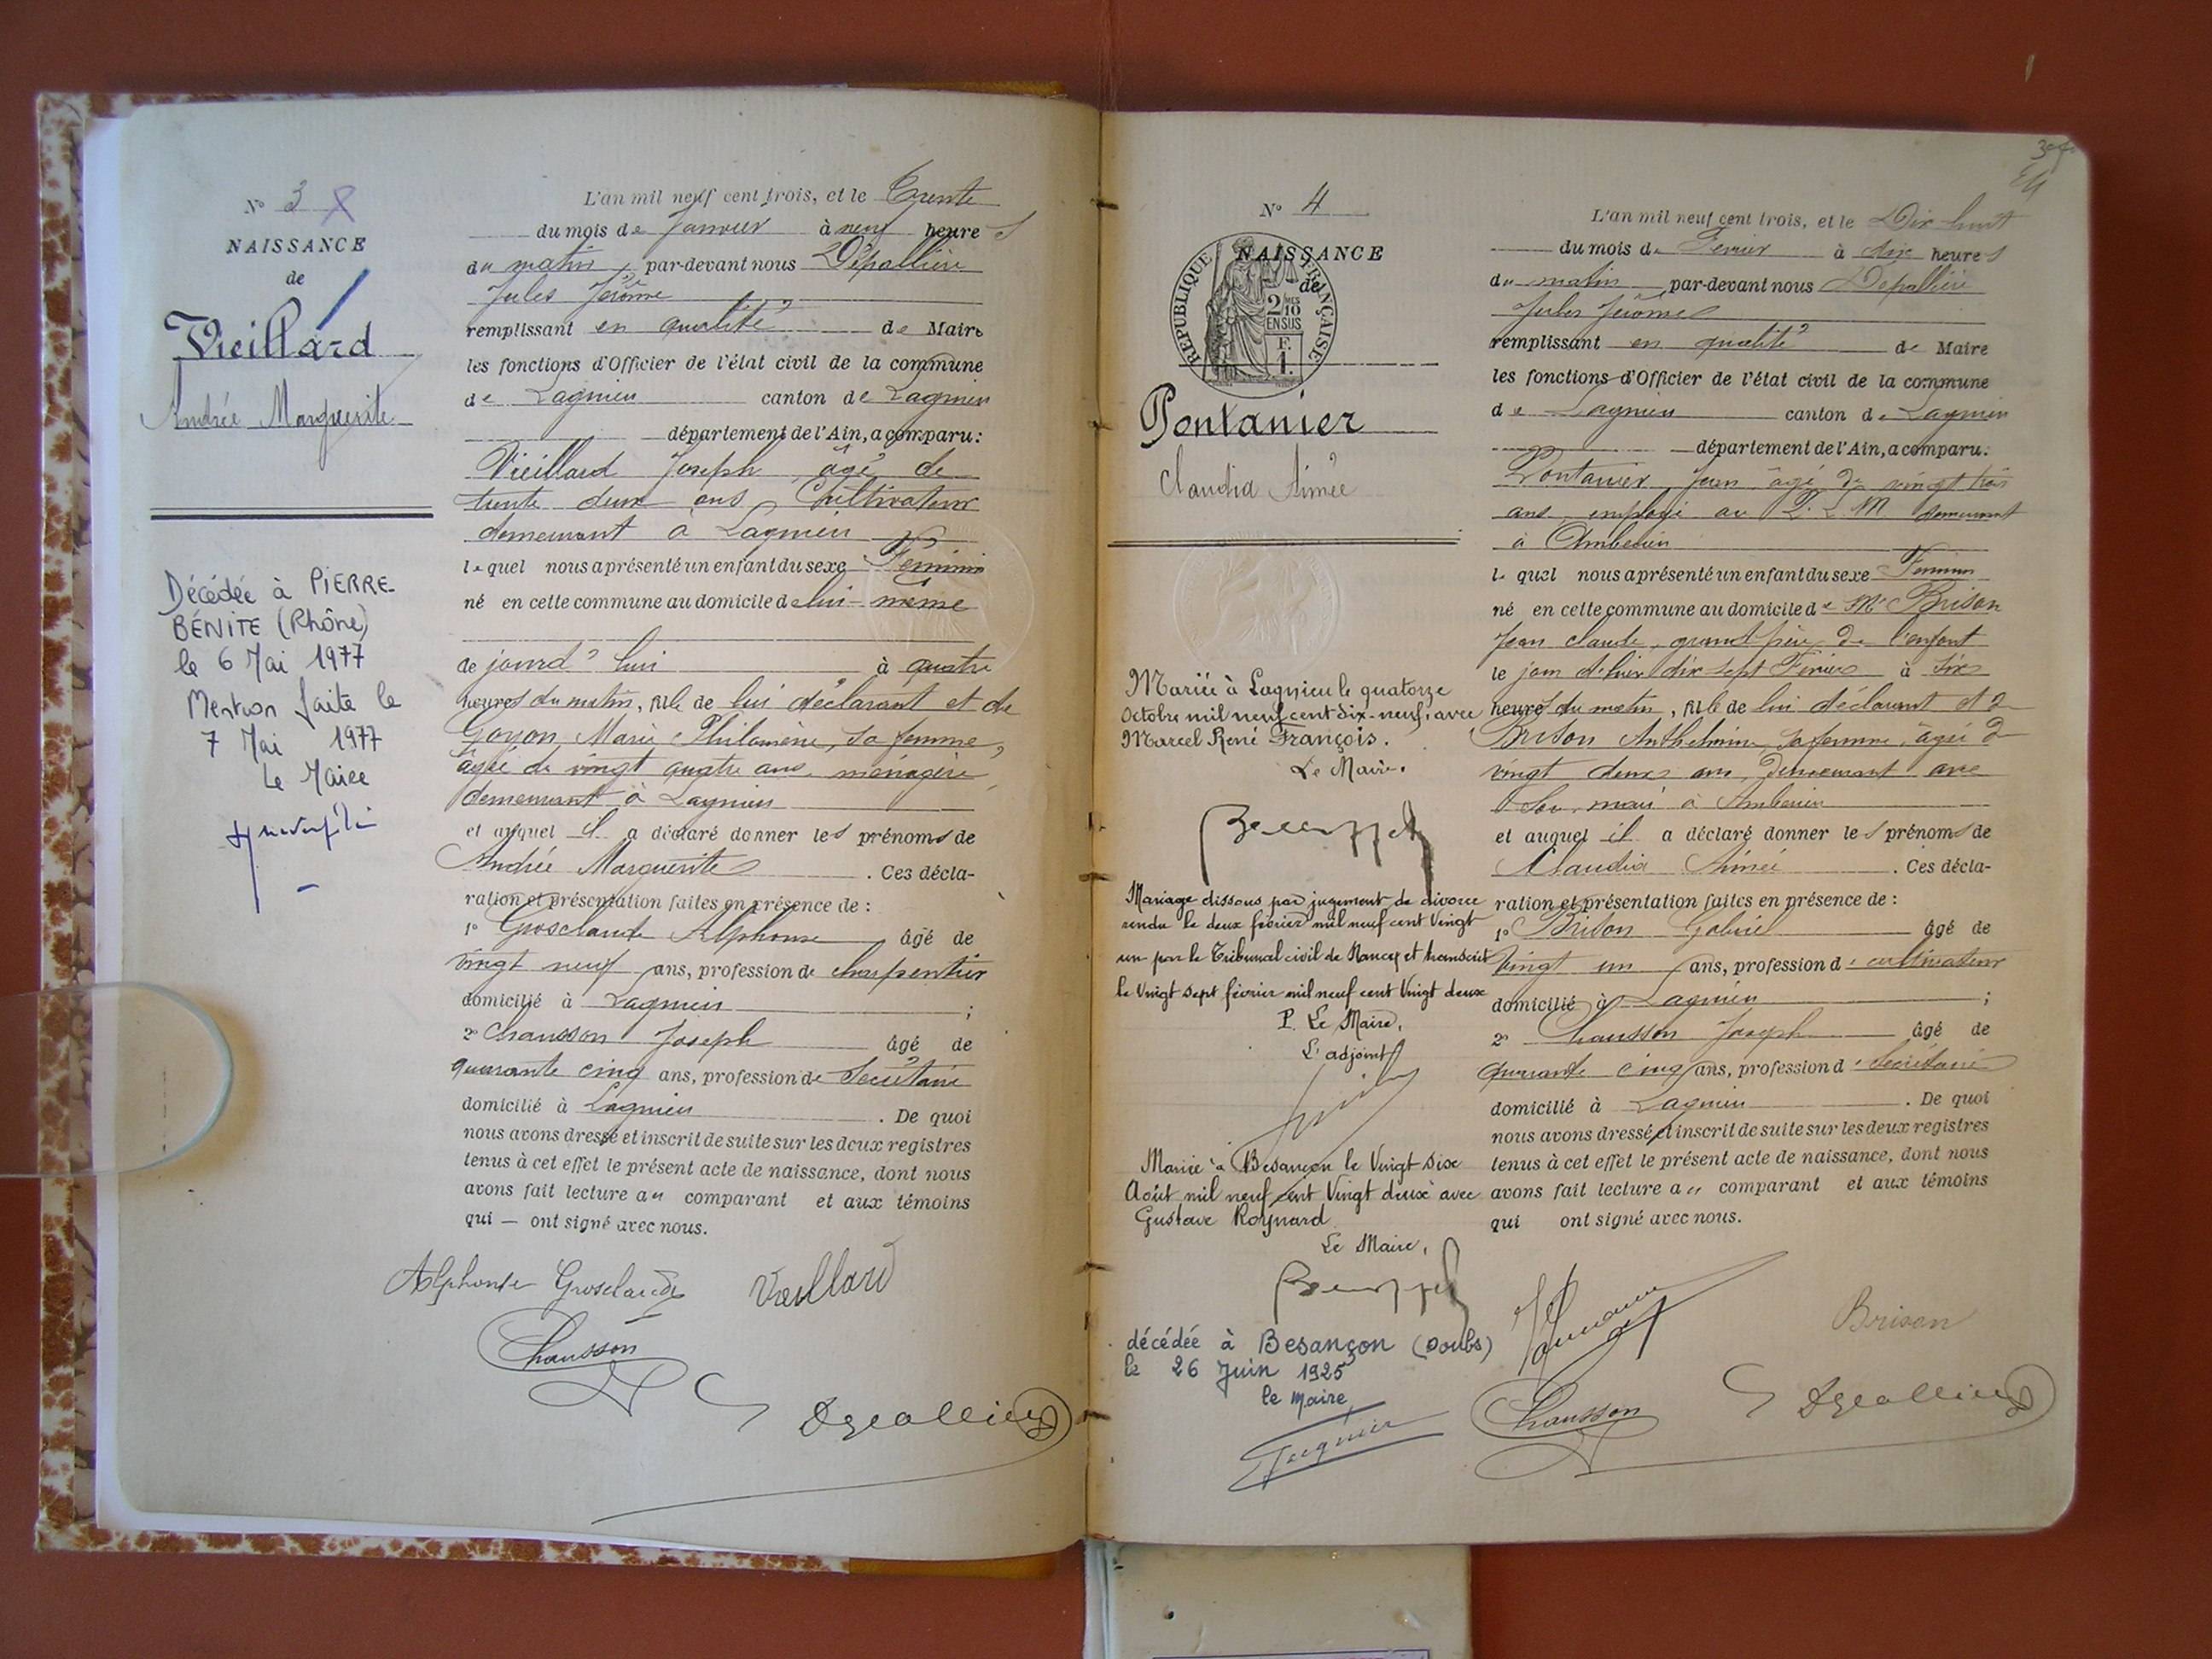 N° 3
NAISSANCE
de
Vieillard
Andrée Marguerite
Décédée à PIERRE-
BÉNITE (Rhône)
le 6 Mai 1977
Mention faite le
7 Mai 1977
Le Maire
L'an mil neuf cent trois, et le Trente
du mois de Janvier à neuf heures
du matin, par-devant nous Dépallière
Jules Jérôme
remplissant en qualité de Maire
les fonctions d'Officier de l'état civil de la commune
de Lagnieu canton de Lagnieu
département de l'Ain, a comparu:
Vieillard Joseph âgé de
trente deux ans, Cultivateur
demeurant à Lagnieu
lequel nous a présenté un enfant du sexe Féminin
né en cette commune au domicile de lui-même
de jourd'hui à quatre
heures du matin, fille de lui déclarant et de
Goyon Marie Philomène, sa femme,
âgée de vingt quatre ans, ménagère,
demeurant à Lagnieu
et auquel il a déclaré donner les prénoms de
Andrée Marguerite. Ces décla-
ration et présentation faites en présence de :
1° Grosclaude Alphonse, âgé de
vingt neuf ans, profession de charpentier
domicilié à Lagnieu ;
2° Chausson Joseph âgé de
quarante cinq ans, profession de Secrétaire
domicilié à Lagnieu. De quoi
nous avons dressé et inscrit de suite sur les deux registres
tenus à cet effet le présent acte de naissance, dont nous
avons fait lecture au comparant et aux témoins
qui — ont signé avec nous.
Alphonse Grosclaude Vieillard
Chausson
Dépallière
N° 4
NAISSANCE
de
RÉPUBLIQUE FRANÇAISE
2/10 MES
EN SUS
F.
1.
Pontanier
Claudia Aimée
Mariée à Lagnieu le quatorze
Octobre mil neuf cent dix-neuf, avec
Marcel René François.
Le Maire.
Mariage dissous par jugement de divorce
rendu le deux février mil neuf cent vingt
un par le Tribunal civil de Nancy et transcrit
le Vingt sept février mil neuf cent Vingt deux
P. Le Maire,
L'adjoint
Mariée à Besançon le Vingt six
Août mil neuf cent Vingt deux avec
Gustave Roynard
Le Maire,
décédée à Besançon (Doubs)
le 26 Juin 1925
le maire
L'an mil neuf cent trois, et le Dix huit
du mois de Février à dix heures
du matin par-devant nous Depallière
Jules Jérôme
remplissant en qualité de Maire
les fonctions d'Officier de l'état civil de la commune
de Lagnieu canton de Lagnieu
département de l'Ain, a comparu:
Pontanier Jean âgé de vingt trois
ans, employé au P. L. M. demeurant
à Ambérieu
lequel nous a présenté un enfant du sexe Féminin
né en cette commune au domicile de Mr Brison
Jean Claude, grand père de l'enfant
le jour d'hier dix sept Février à six
heures du matin, fille de lui déclarant et de
Brison Anthelmine sa femme, âgée de
vingt deux ans, demeurant avec
son mari à Ambérieu
et auquel il a déclaré donner les prénoms de
Claudia Aimée. Ces décla-
ration et présentation faites en présence de :
1° Brison Gabriel âgé de
vingt un ans, profession de cultivateur
domicilié à Lagnieu ;
2° Chausson Joseph âgé de
quarante cinq ans, profession de Secrétaire
domicilié à Lagnieu. De quoi
nous avons dressé et inscrit de suite sur les deux registres
tenus à cet effet le présent acte de naissance, dont nous
avons fait lecture au comparant et aux témoins
qui ont signé avec nous.
Brison
Chausson Dépallière